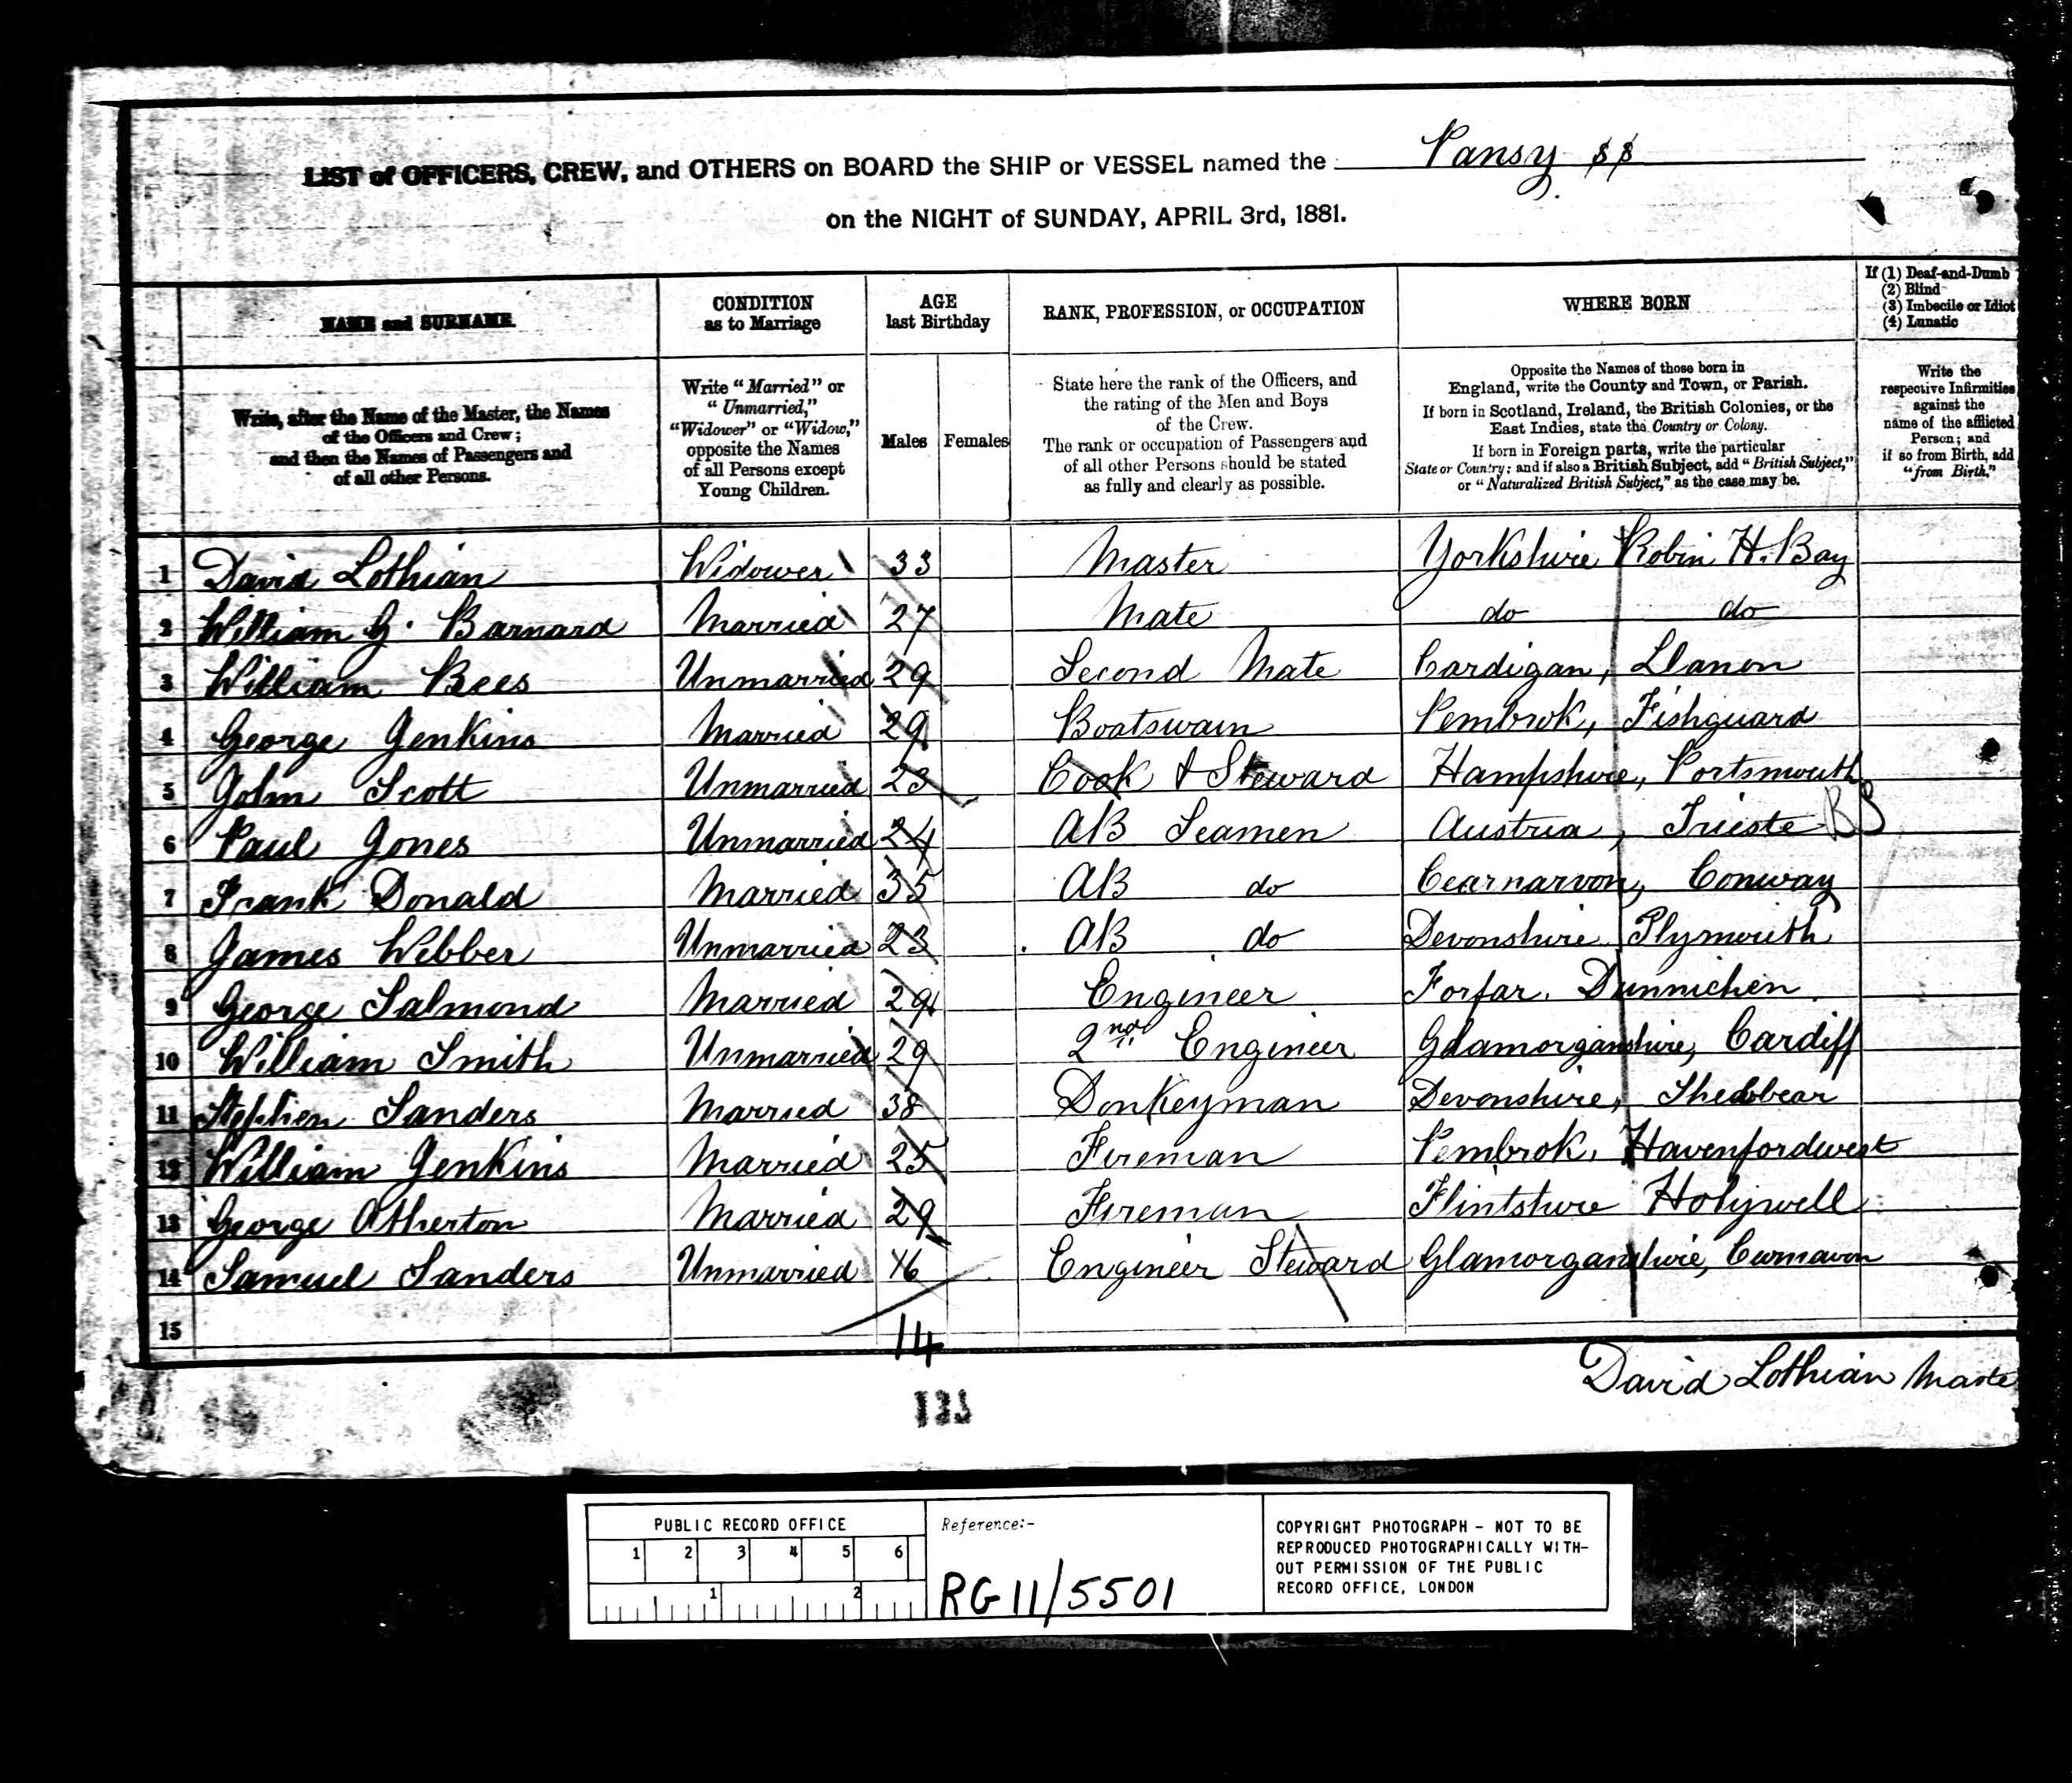 LIST of OFFICERS, CREW, and OTHERS on BOARD the SHIP or VESSEL named the Pansy SS
on the NIGHT of SUNDAY, APRIL 3rd, 1881.
NAME and SURNAME
CONDITION as to Marriage
AGE last Birthday
RANK, PROFESSION, or OCCUPATION
WHERE BORN
If (1) Deaf-and-Dumb
(2) Blind
(3) Imbecile or Idiot
(4) Lunatic
Write, after the Name of the Master, the Names
of the Officers and Crew;
and then the Names of Passengers and
of all other Persons.
Write "Married" or
"Unmarried,"
"Widower" or "Widow,"
opposite the Names
of all Persons except
Young Children.
Males
Females
State here the rank of the Officers, and
the rating of the Men and Boys
of the Crew.
The rank or occupation of Passengers and
of all other Persons should be stated
as fully and clearly as possible.
Opposite the Names of those born in
England, write the County and Town, or Parish.
If born in Scotland, Ireland, the British Colonies, or the
East Indies, state the Country or Colony.
If born in Foreign parts, write the particular
State or Country; and if also a British Subject, add "British Subject,"
or "Naturalized British Subject," as the case may be.
Write the
respective Infirmities
against the
name of the afflicted
Person; and
if so from Birth, add
"from Birth."
1 David Lothian Widower 33 Master Yorkshire Robin H. Bay
2 William G. Barnard Married 27 Mate do do
3 William Bees Unmarried 29 Second Mate Cardigan, Llanon
4 George Jenkins Married 29 Boatswain Pembrok, Fishguard
5 John Scott Unmarried 23 Cook & Steward Hampshire, Portsmouth
6 Paul Jones Unmarried 24 AB Seamen Austria, Trieste BS
7 Frank Donald Married 35 AB do Cearnarvon, Conway
8 James Webber Unmarried 23 AB do Devonshire Plymouth
9 George Salmond Married 29 Engineer Forfar, Dunnichen
10 William Smith Unmarried 29 2nd Engineer Glamorganshire, Cardiff
11 Stephen Sanders Married 38 Donkeyman Devonshire, Shebbear
12 William Jenkins Married 25 Fireman Pembrok, Havenfordwest
13 George Atherton Married 29 Fireman Flintshire Holywell
14 Samuel Sanders Unmarried 16 Engineer Steward Glamorganshire,
15
14
David Lothian Maste
PUBLIC RECORD OFFICE
1 2 3 4 5 6
1 2
Reference:-
RG 11/5501
COPYRIGHT PHOTOGRAPH - NOT TO BE
REPRODUCED PHOTOGRAPHICALLY WITH-
OUT PERMISSION OF THE PUBLIC
RECORD OFFICE, LONDON